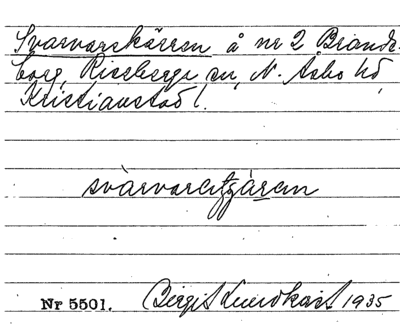 Svarvareskärren å nr 2 Brands-
borg, Riseberga sn, N. Åsbo hd
Kristianstad l.
Nr 5501. Birgit Lundkvist 1935